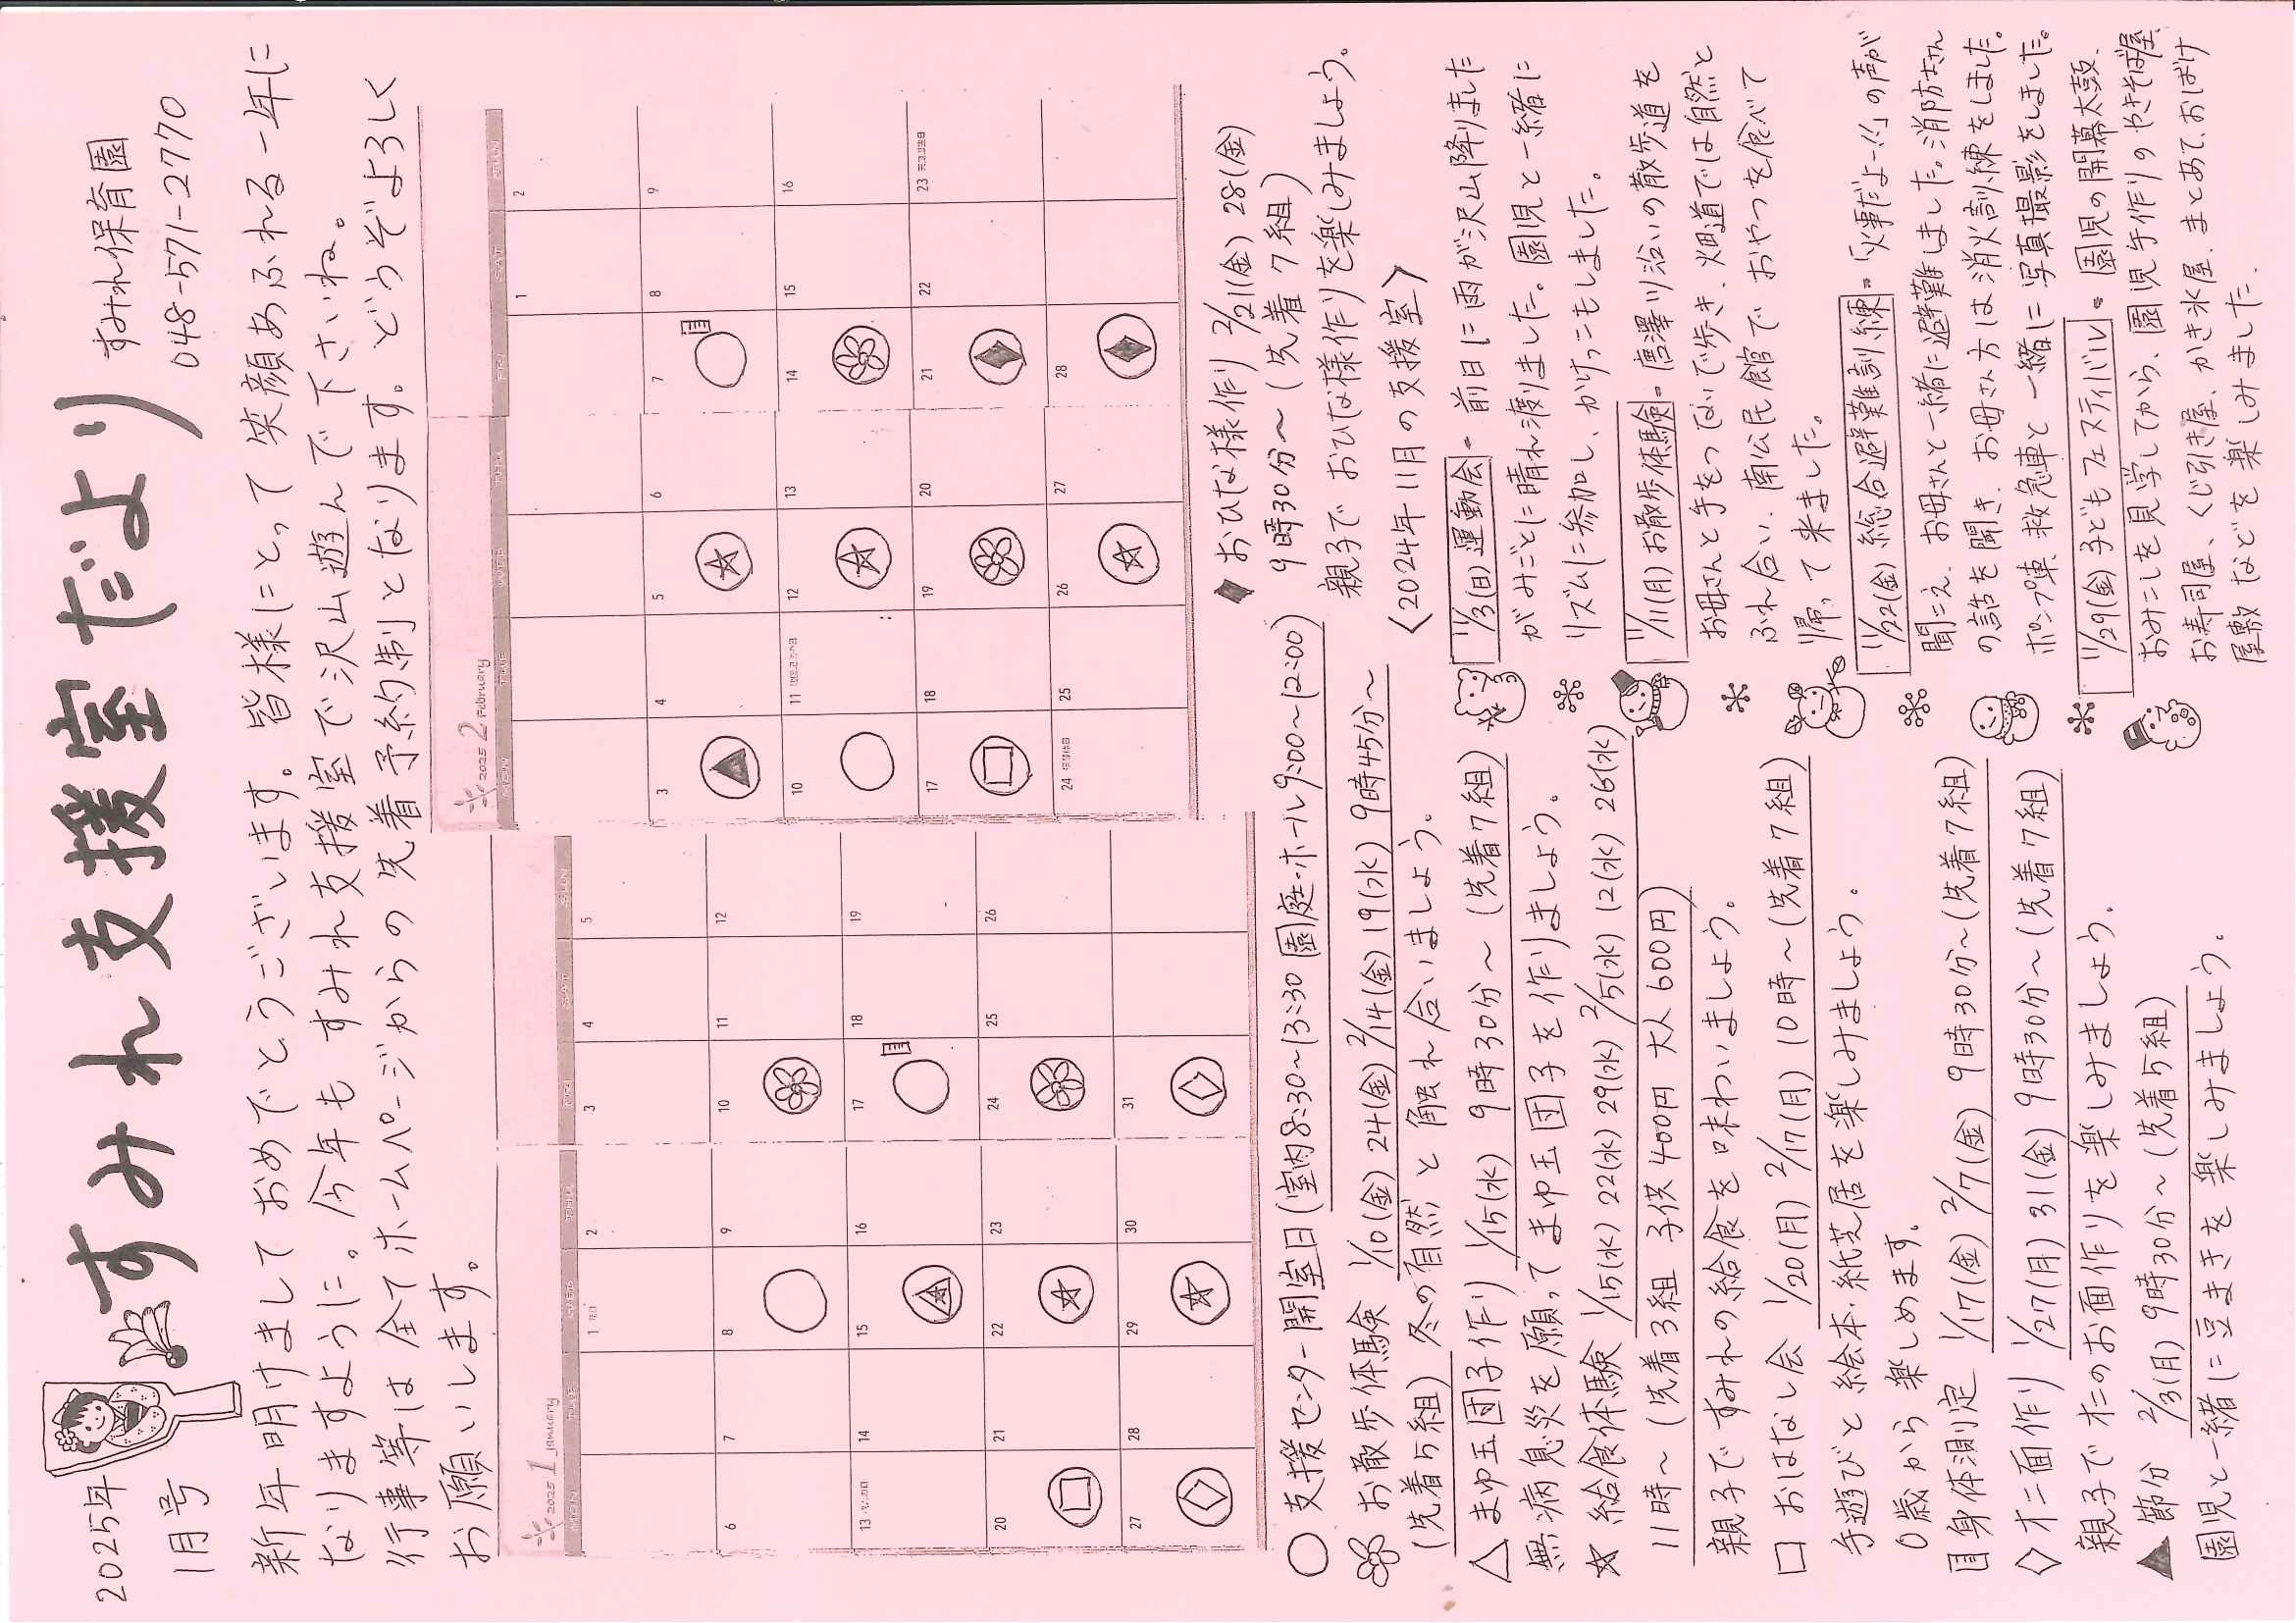 2025年
1月号
すみれ支援室だより
すみれ保育園
048-571-2770
新年明けましておめでとうございます。皆様にとって笑顔あふれる一年に
なりますように。今年もすみれ支援室で沢山遊んで下さいね。
行事等は全てホームページからの先着予約制となります。どうぞよろしく
お願いします。
2025 1 January
MON TUE WED THU FRI SAT SUN
1 2 3 4 5
6 7 8 9 10 11 12
13 14 15 16 17 18 19
20 21 22 23 24 25 26
27 28 29 30 31
2025 2 February
MON TUE WED THU FRI SAT SUN
1 2
3 4 5 6 7 8 9
10 11 12 13 14 15 16
17 18 19 20 21 22 23
24 25 26 27 28
○ 支援センター開室日(室内8:30~13:30 園庭・ホール9:00~12:00)
お散歩体験 1/10(金) 24(金) 2/14(金) 19(水) 9時45分~
(先着5組) 冬の自然と触れ合いましょう。
△ まゆ玉団子作り 1/15(水) 9時30分~ (先着7組)
無病息災を願ってまゆ玉団子を作りましょう。
☆ 給食体験 1/15(水) 22(水) 29(水) 2/5(水) 12(水) 26(水)
11時~ (先着3組 子供400円 大人600円)
親子ですみれの給食を味わいましょう。
□ おはなし会 1/20(月) 2/17(月) 10時~(先着7組)
手遊びと絵本・紙芝居を楽しみましょう。
0歳から楽しめます。
身体測定 1/17(金) 2/7(金) 9時30分~(先着7組)
◇ オニ面作り 1/27(月) 31(金) 9時30分~(先着7組)
親子でオニのお面作りを楽しみましょう。
▲ 節分 2/3(月) 9時30分~ (先着5組)
園児と一緒に豆まきを楽しみましょう。
◆ おひな様作り 2/21(金) 28(金)
9時30分~ (先着7組)
親子でおひな様作りを楽しみましょう。
〈2024年11月の支援室〉
11/3(日)運動会。前日に雨が沢山降りました
がみごとに晴れ渡りました。園児と一緒に
リズムに参加し、かけっこもしました。
11/11(月)お散歩体験。唐澤川沿いの散歩道を
お母さんと手をつないで歩き、畑道では自然と
ふれ合い、南公民館でおやつを食べて
帰って来ました。
11/22(金)総合避難訓練。「火事だよー!!」の声が
聞こえ、お母さんと一緒に避難しました。消防さん
の話を聞き、お母さん方は消火訓練をしました。
ポンプ車、救急車と一緒に写真撮影をしました。
11/29(金)子どもフェスティバル。園児の開幕太鼓、
おみこしを見学してから、園児手作りのやきそば屋、
お寿司屋、くじ引き屋、かき氷屋、まとあて、おばけ
屋敷などを楽しみました。